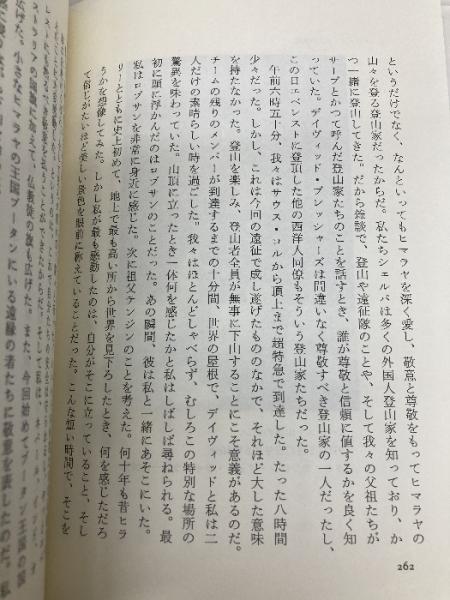 というだけでなく、なんといってもヒマラヤを深く愛し、敬意と尊敬をもってヒマラヤの
山々を登る登山家だったからだ。私たちシェルパは多くの外国人登山家を知っており、か
つ一緒に登山してきた。だから雑談で、登山や遠征隊のことや、そして我々の父祖たちが
サーブとかつて呼んだ登山家たちのことを話すとき、誰が尊敬と信頼に値するかを良く知
っていた。デイヴィッド・ブレッシャーズは間違いなく尊敬すべき登山家の一人だったし、
この日エベレストに登頂した他の西洋人同僚もそういう登山家たちだった。
午前六時五十分、我々はサウス・コルから頂上まで超特急で到達した。たった八時間
少々だった。しかし、これは今回の遠征で成し遂げたもののなかで、それほど大した意味
を持たなかった。登山を楽しみ、登山者全員が無事に下山することにこそ意義があるのだ。
チームの残りのメンバーが到達するまでの十分間、世界の屋根で、デイヴィッドと私は二
人だけの素晴らしい時を過ごした。我々はほとんどしゃべらず、むしろこの特別な場所の
驚異を味わっていた。山頂に立ったとき一体何を感じたかと私はしばしば尋ねられる。最
初に頭に浮かんだのはロブサンのことだった。あの瞬間、彼は私と一緒にあそこにいた。
私はロブサンを非常に身近に感じた。次に祖父テンジンのことを考えた。何十年も昔ヒラ
リーとともに史上初めて、地上で最も高い所から世界を見下ろしたとき、何を感じただろ
うかを想像してみた。しかし私が最も感動したのは、自分がそこに立っていること、そし
て信じがたいほど美しい景色を眼前に称えていることだった。こんな短い時間で、そこを
ストラリアの国旗に加えて、仏教徒の旗も広げた。また、今回初めてブータン王国の国
広げた。小さなヒマラヤの王国ブータンにいる遠縁の者たちに敬意を表したのだ。私
262